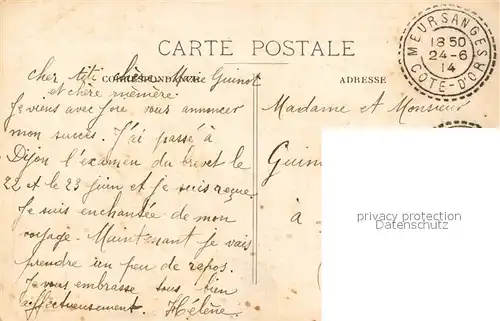 CARTE POSTALE
CORRESPONDANCE
ADRESSE
MEURSANGES
18 50
24-6
14
COTE-D'OR
cher titi Marie Guinot
et chère mémère.
Je viens avec joie vous annoncer
mon succès. J'ai passé à
Dijon l'examen du brevet le
22 et le 23 juin et je suis reçue.
Je suis enchantée de mon
voyage. Maintenant je vais
prendre un peu de repos.
Je vous embrasse tous bien
affectueusement. Hélène.
Madame et Monsieur
Guin
à
privacy protection
Datenschutz